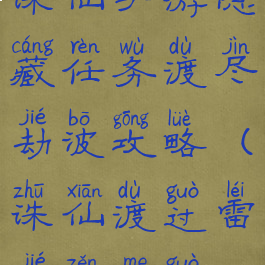 诛仙
cáng rèn wù dù jìn
藏任务渡尽
jié bō gōng lüè
劫波攻略（
zhū xiān dù guò léi
诛仙渡过雷
jié zěn me guò